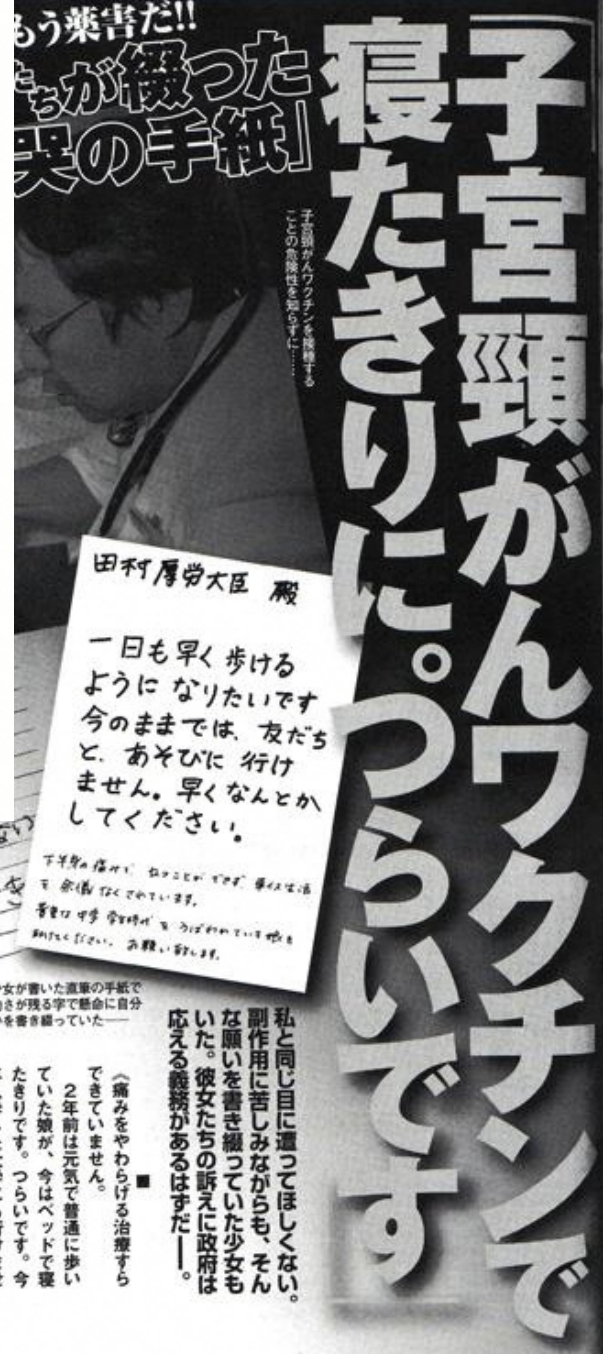 「子宮頸がんワクチンで
寝たきりに。つらいです」
もう薬害だ!!
たちが綴った
哭の手紙」
子宮頸がんワクチンを接種する
ことの危険性を知らずに……
田村厚労大臣 殿
一日も早く歩ける
ように なりたいです
今のままでは、友だち
と、あそびに 行け
ません。早くなんとか
してください。
下半身の痛みで、立つことができず、車イス生活
を余儀なくされています。
貴重な中学 学生時代をうばわれている娘を
助けてください。お願い致します。
女が書いた直筆の手紙で
さが残る字で懸命に自分
を書き綴っていた――
私と同じ目に遭ってほしくない。
副作用に苦しみながらも、そん
な願いを書き綴っていた少女も
いた。彼女たちの訴えに政府は
応える義務があるはずだ――。
■
《痛みをやわらげる治療すら
できていません。
2年前は元気で普通に歩い
ていた娘が、今はベッドで寝
たきりです。つらいです。今